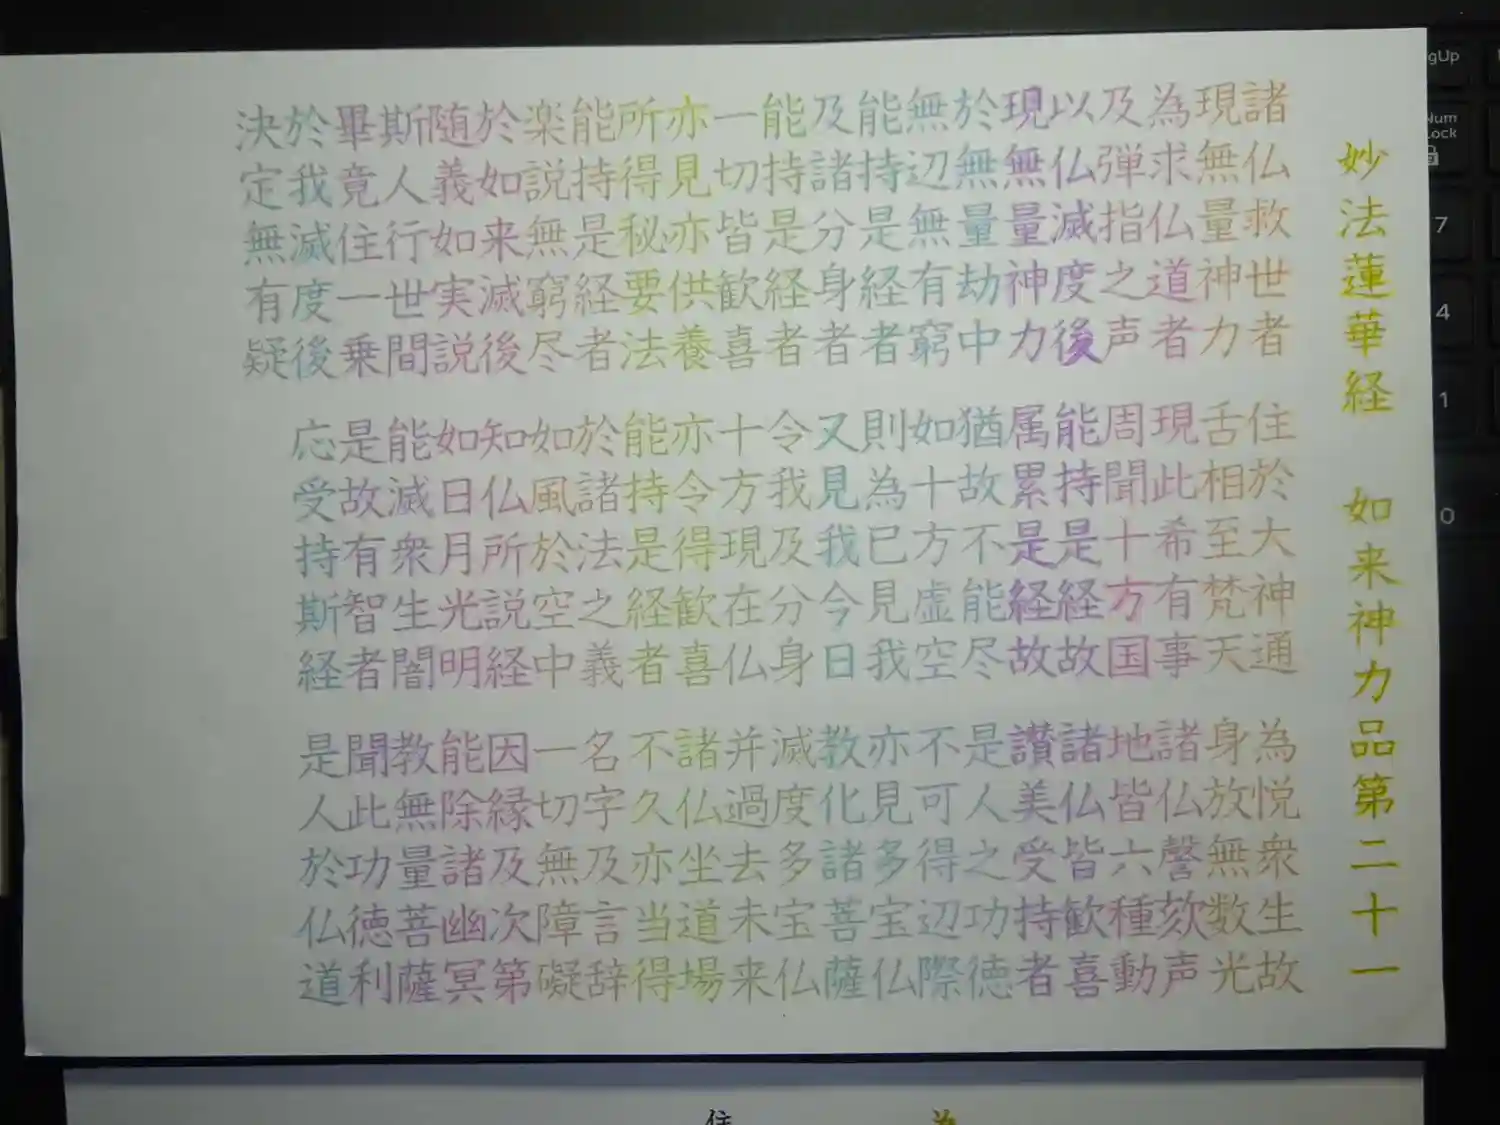 妙法蓮華経 如来神力品第二十一
諸仏救世者 住於大神通 為悦衆生故
現無量神力 舌相至梵天 身放無数光
為求仏道者 現此希有事 諸仏謦欬声
及弾指之声 周聞十方国 地皆六種動
以仏滅度後 能持是経故 諸仏皆歓喜
現無量神力 属累是経故 讃美受持者
於無量劫中 猶故不能尽 是人之功徳
無辺無有窮 如十方虚空 不可得辺際
能持是経者 則為已見我 亦見多宝仏
及諸分身者 又見我今日 教化諸菩薩
能持是経者 令我及分身 滅度多宝仏
一切皆歓喜 十方現在仏 并過去未来
亦見亦供養 亦令得歓喜 諸仏坐道場
所得秘要法 能持是経者 不久亦当得
能持是経者 於諸法之義 名字及言辞
楽説無窮尽 如風於空中 一切無障礙
於如来滅後 知仏所説経 因縁及次第
随義如実説 如日月光明 能除諸幽冥
斯人行世間 能滅衆生闇 教無量菩薩
畢竟住一乗 是故有智者 聞此功徳利
於我滅度後 応受持斯経 是人於仏道
決定無有疑
gUp
Num
Lock
7
4
1
0